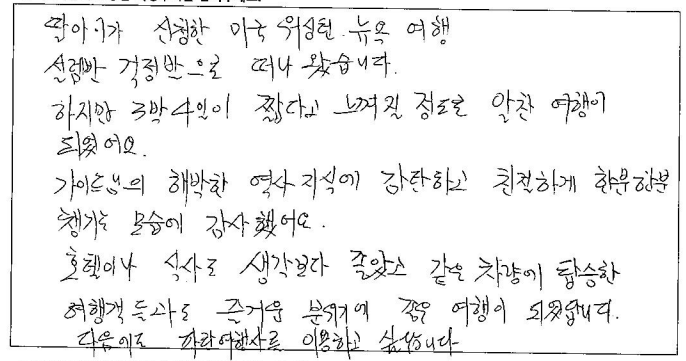 딸아이가 신청한 미국 워싱턴.뉴욕 여행
설렘반 걱정반으로 떠나 왔습니다.
하지만 3박4일이 짧다고 느껴질 정도로 알찬 여행이
되었어요.
가이드님의 해박한 역사지식에 감탄하고 친절하게 한분한분
챙기는 모습에 감사했어요.
호텔이나 식사도 생각보다 좋았고 같은 차량에 탑승한
여행객들과도 즐거운 분위기에 좋은 여행이 되었답니다.
다음에도 여행사를 이용하고 싶습니다